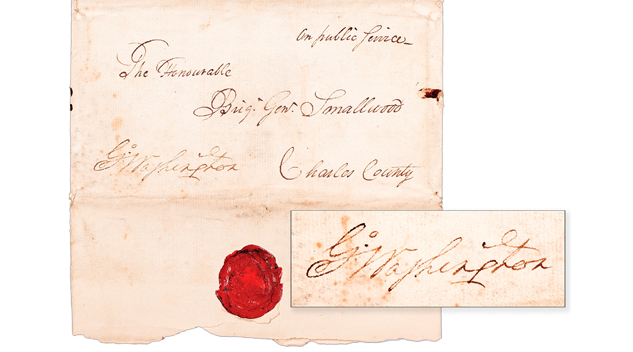 on public Service
The Honourable
Brigr. Genl. Smallwood
Go: Washington
Charles County
Go: Washington